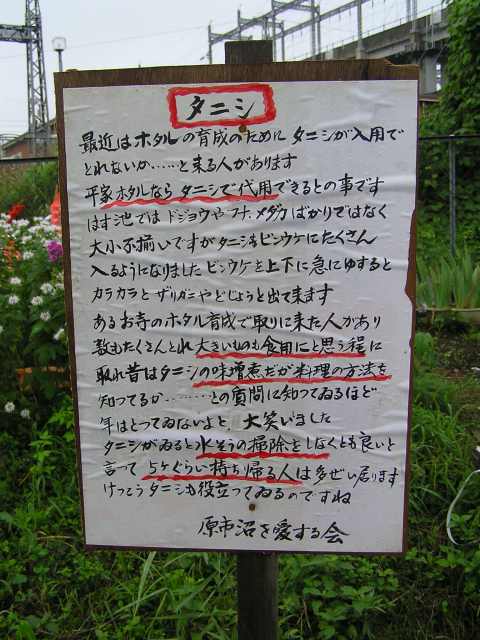 タニシ
最近はホタルの育成のためにタニシが入用で
とれないか……と来る人があります
平家ホタルならタニシで代用できるとの事です
はす池ではドジョウやフナ、メダカばかりではなく
大小不揃いですがタニシもビンウケにたくさん
入るようになりましたビンウケを上下に急にゆすると
カラカラとザリガニやどじょうと出て来ます
あるお寺のホタル育成で取りに来た人があり
数もたくさんとれ大きいものも食用にと思う程に
取れ昔はタニシの味噌煮だが料理の方法を
知ってるか………との質問に知ってゐるほど
年はとってゐないよと、大笑いました
タニシがゐると水そうの掃除をしなくとも良いと
言って5ヶぐらい持ち帰る人は多ぜい居ります
けっこうタニシも役立ってゐるのですね
原市沼を愛する会